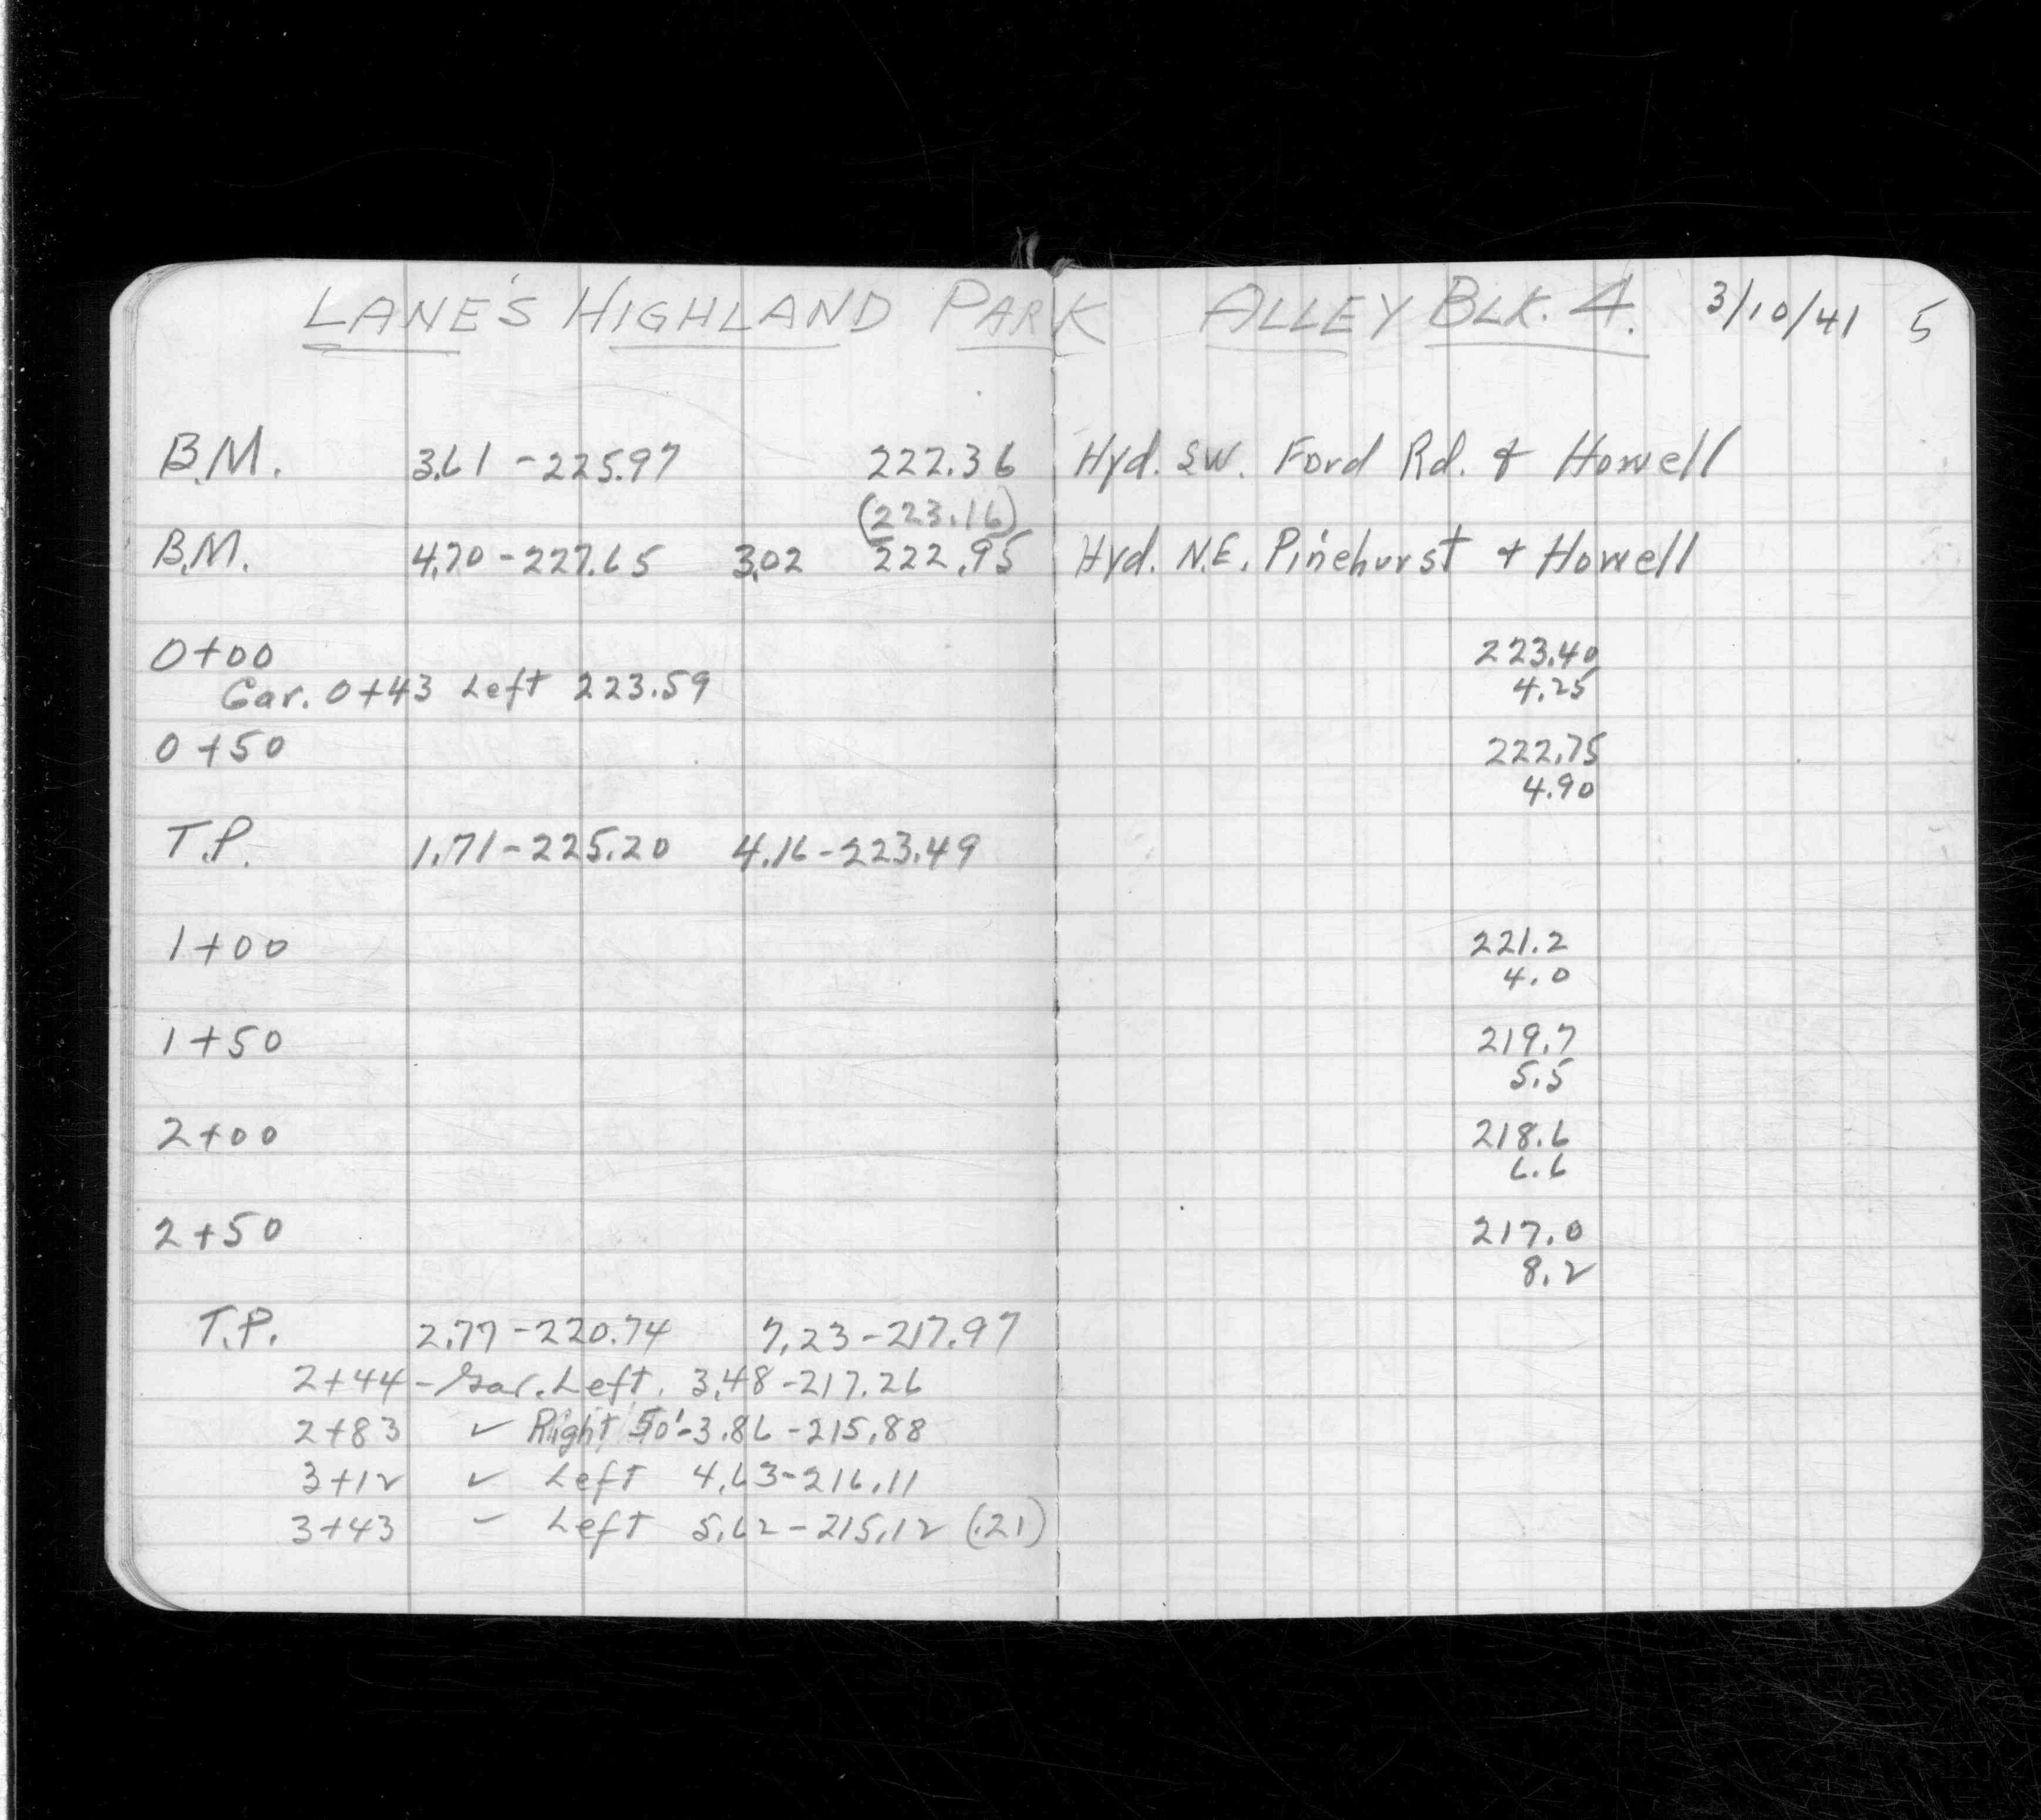 LANE'S HIGHLAND PARK ALLEY BLK. 4. 3/10/41 5
B.M. 3.61 - 225.97 222.36 Hyd. S.W. Ford Rd. & Howell
(223.16)
B.M. 4.70 - 227.65 3.02 222.95 Hyd. N.E. Pinehurst & Howell
0+00 223.40
Gar. 0+43 Left 223.59 4.25
0+50 222.75
4.90
T.P. 1.71 - 225.20 4.16 - 223.49
1+00 221.2
4.0
1+50 219.7
5.5
2+00 218.6
6.6
2+50 217.0
8.2
T.P. 2.77 - 220.74 7.23 - 217.97
2+44 - Gar. Left. 3.48 - 217.26
2+83 ✓ Right 50' - 3.86 - 215.88
3+12 ✓ Left 4.63 - 216.11
3+43 ✓ Left 5.62 - 215.12 (.21)